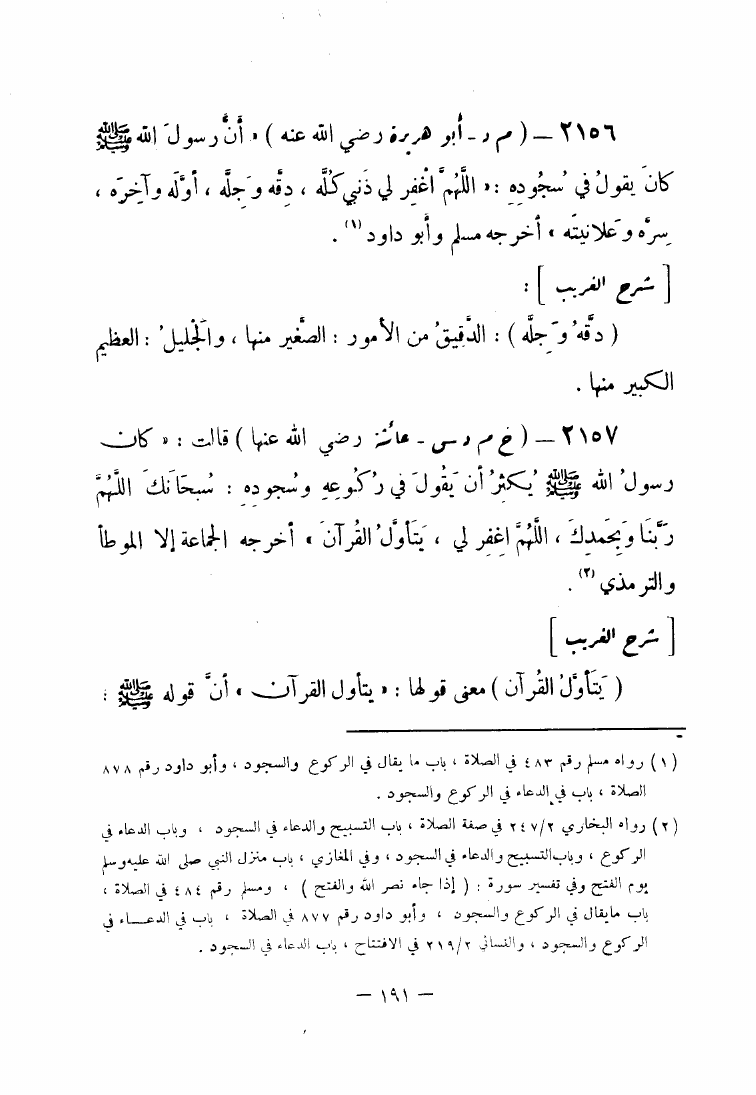 ٢١٥٦ – ( م د - أبو هريرة رضي الله عنه ) « أنَّ رسولَ الله ﷺ
كانَ يقولُ في سُجُودِهِ : « اللَّهُمَّ اغْفِر لي ذَنبي كُلَّه ، دِقَّه وَجِلَّه ، أوَّلَه وآخِرَه ،
سِرَّه وَعَلانيتَه » أخرجه مسلم وأبو داود (١) .
[ شرح الغريب ] :
( دقَّهُ وَجِلَّه ) : الدَّقِيقُ من الأمور : الصَّغير منها ، والجْليلُ : العظيم
الكبير منها .
٢١٥٧ – ( خ م د س - عائشة رضي الله عنها ) قالت : « كان
رسولُ الله ﷺ يُكثِرُ أن يَقُولَ في رُكُوعِهِ وسُجودِهِ : سُبحَانَكَ اللَّهُمَّ
رَبَّنَا وَبِحَمدِكَ ، اللَّهُمَّ اغفِر لي ، يَتَأوَّلُ القُرآنَ » أخرجه الجماعة إلا الموطأ
والترمذي (٢) .
[ شرح الغريب ]
( يَتَأوَّلُ القُرآن ) معنى قولها : « يتأول القرآن » أنَّ قوله ﷺ :
(١) رواه مسلم رقم ٤٨٣ في الصلاة ، باب ما يقال في الركوع والسجود ، وأبو داود رقم ٨٧٨
الصلاة ، باب في الدعاء في الركوع والسجود .
(٢) رواه البخاري ٢٤٧/٢ في صفة الصلاة ، باب التسبيح والدعاء في السجود ، وباب الدعاء في
الركوع ، وباب التسبيح والدعاء في السجود ، وفي المغازي ، باب منزل النبي صلى الله عليه وسلم
يوم الفتح وفي تفسير سورة : ( إذا جاء نصر الله والفتح ) ، ومسلم رقم ٤٨٤ في الصلاة ،
باب مايقال في الركوع والسجود ، وأبو داود رقم ٨٧٧ في الصلاة ، باب في الدعاء في
الركوع والسجود ، والنسائي ٢١٩/٢ في الافتتاح ، باب الدعاء في السجود .
– ١٩١ –